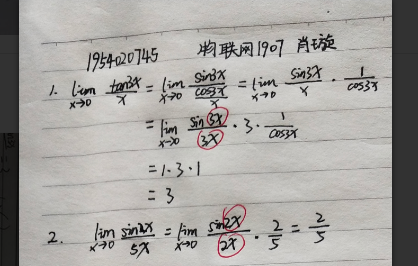 1954020745 物联网1907 肖璇
1. lim x→0 tan3x/x = lim x→0 (sin3x/cos3x)/x = lim x→0 sin3x/x · 1/cos3x
= lim x→0 sin3x/3x · 3 · 1/cos3x
= 1·3·1
= 3
2. lim x→0 sin2x/5x = lim x→0 sin2x/2x · 2/5 = 2/5